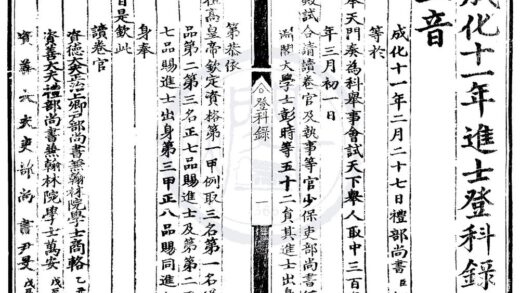 成化十一年進士登科錄
音
成化十一年二月二十七日禮部尚書臣
等於
奉天門奏為科舉事會試天下舉人取中三百
年三月初一日
殿試合請讀卷官及執事等官少保吏部尚書
淵閣大學士彭時等五十二員其進士出身
登科錄 一
第恭依
高皇帝欽定資格第一甲例取三名第一名
品第二第三名正七品賜進士及第第二
七品賜進士出身第三甲正八品賜同進
身奉
旨是欽此
讀卷官
資德大夫正治上卿戶部尚書兼翰林院學士商輅 乙丑
資善大夫禮部尚書兼翰林院學士萬安 戊
資善大夫吏部尚書尹旻 戊